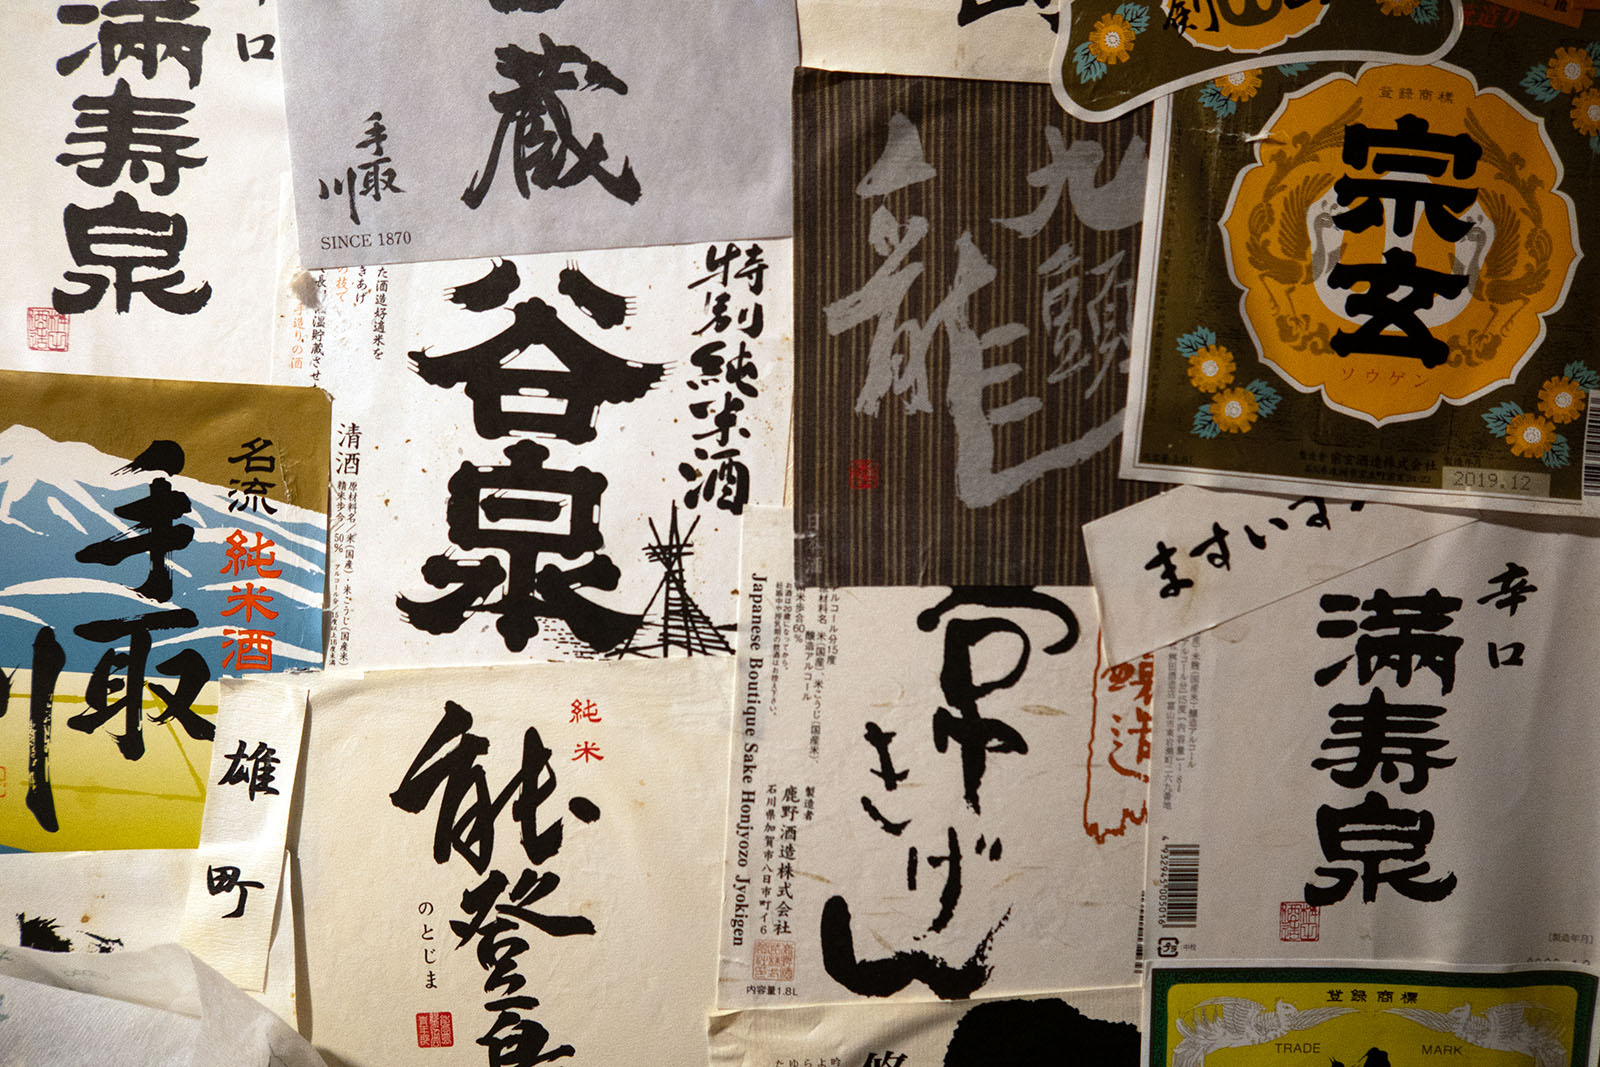 満寿泉
口
蔵
手取川
SINCE 1870
た酒造好適米を
きあげ
の技で
手造りの酒
谷泉
特別純米酒
清酒
原材料名/米(国産)・米こうじ(国産米)
精米歩合/50%
九頭龍
登録商標
宗玄
ソウゲン
製造者 宗玄酒造株式会社
製造年月
2019.12
名流
純米酒
手取川
雄町
純米
能登
のとじま
アルコール分15度
原材料名 米(国産)、米こうじ(国産米)、醸造アルコール
精米歩合60%
Japanese Boutique Sake Honjyozo Jyokigen
製造者
鹿野酒造株式会社
石川県加賀市八日市町イ6
内容量1.8L
常きげん
醸造
ますいずみ
辛口
満寿泉
4932945005016
[製造年月]
登録商標
TRADE MARK